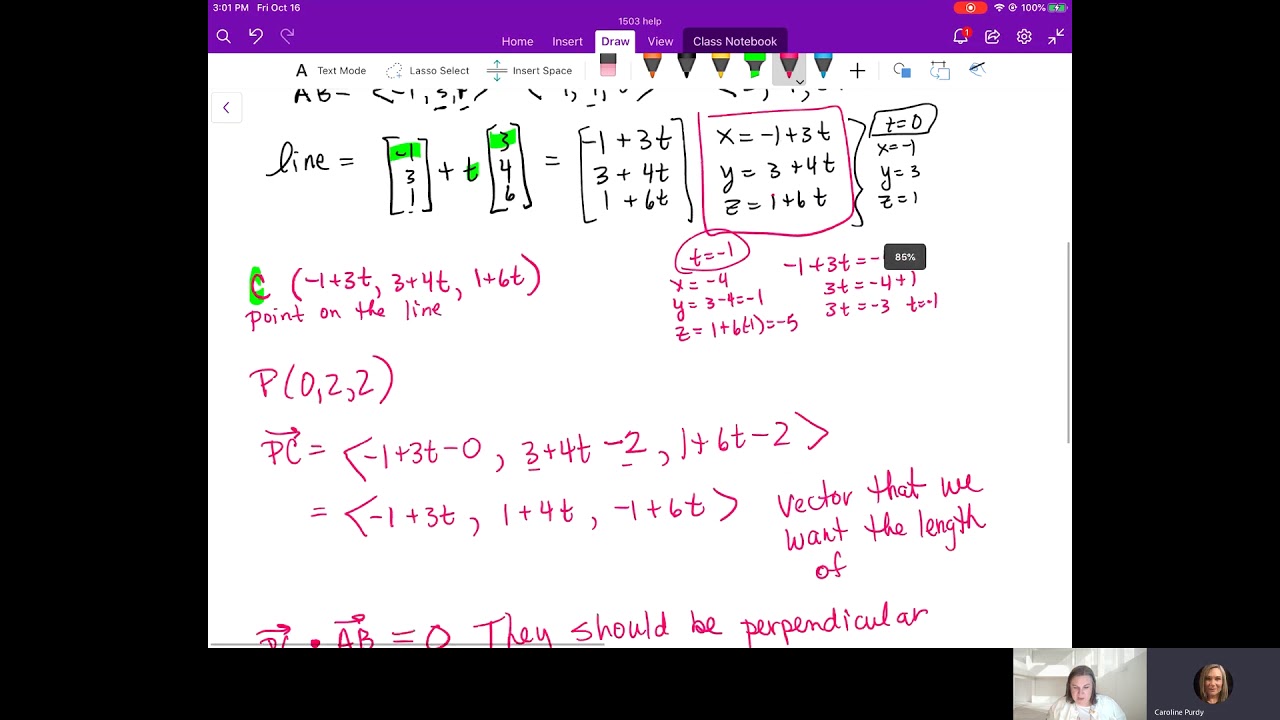 3:01 PM Fri Oct 16
100%
1503 help
Home Insert Draw View Class Notebook
1
A Text Mode Lasso Select Insert Space
AB =
line = [-1 3 1] + t [3 4 6] = [-1 + 3t 3 + 4t 1 + 6t] x = -1+3t y = 3 + 4t z = 1+6t } t=0 x=-1 y=3 z=1
85%
C (-1+3t, 3+4t, 1+6t)
point on the line
t=-1
x = -4
y = 3-4=-1
z = 1+6(-1)=-5
-1+3t=-
3t=-4+1
3t=-3 t=-1
P(0,2,2)
PC = <-1+3t-0, 3+4t-2, 1+6t-2>
= <-1+3t, 1+4t, -1+6t>
vector that we
want the length
of
PC • AB = 0 They should be perpendicular
Caroline Purdy